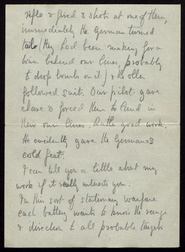 rifle & fired 2 shots at one of them,
immediately the German turned
tail (they had been making for a
town behind our lines, probably
to drop bombs on it) & the other
followed suit. Our pilot gave
chase & forced them to land in
their own lines. Rather good work.
He evidently gave the Germans
cold feet.
I can tell you a little about my
work if it really interests you.
In this sort of stationary warfare
each battery wants to know the range
& direction to all probable targets